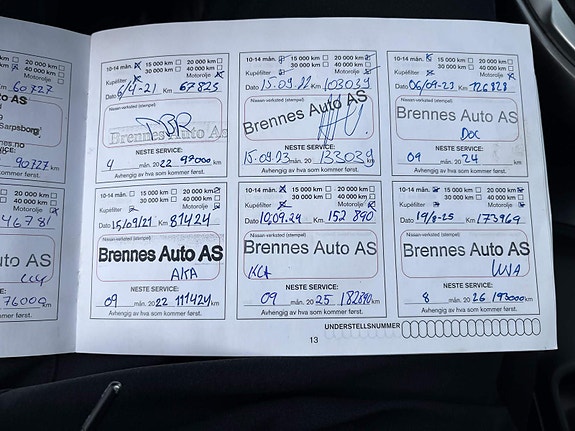 20 000 km
40 000 km
Motorolje
60727
Sarpsborg
nes.no
90727 km
Som kommer først.
20 000 km
40 000 km
Motorolje
46781
76000 km
som kommer først.
10-14 mån. 15 000 km 20 000 km
30 000 km 40 000 km
Kupéfilter Motorolje
Dato 6/4-21 Km 67825
Nissan-verksted (stempel)
Brennes Auto AS
NESTE SERVICE:
4 mån. 2022 97000 km
Avhengig av hva som kommer først.
10-14 mån. 15 000 km 20 000 km
30 000 km 40 000 km
Kupéfilter Motorolje
Dato 15.09.22 Km 103039
Nissan-verksted (stempel)
Brennes Auto AS
NESTE SERVICE:
15.09.23 mån. 20 133039 km
Avhengig av hva som kommer først.
10-14 mån. 15 000 km 20 000 km
30 000 km 40 000 km
Kupéfilter Motorolje
Dato 06/09-23 Km 126828
Nissan-verksted (stempel)
Brennes Auto AS
DOC
NESTE SERVICE:
09 mån. 20 24 km
Avhengig av hva som kommer først.
10-14 mån. 15 000 km 20 000 km
30 000 km 40 000 km
Kupéfilter Motorolje
Dato 15/09/21 Km 81424
Nissan-verksted (stempel)
Brennes Auto AS
NESTE SERVICE:
09 mån. 2022 111424 km
Avhengig av hva som kommer først.
10-14 mån. 15 000 km 20 000 km
30 000 km 40 000 km
Kupéfilter Motorolje
Dato 10.09.24 Km 152 890
Nissan-verksted (stempel)
Brennes Auto AS
NESTE SERVICE:
09 mån. 20 25 182890 km
Avhengig av hva som kommer først.
10-14 mån. 15 000 km 20 000 km
30 000 km 40 000 km
Kupéfilter Motorolje
Dato 19/8-25 Km 173969
Nissan-verksted (stempel)
Brennes Auto AS
NESTE SERVICE:
8 mån. 20 26 193000 km
Avhengig av hva som kommer først.
UNDERSTELLSNUMMER
13